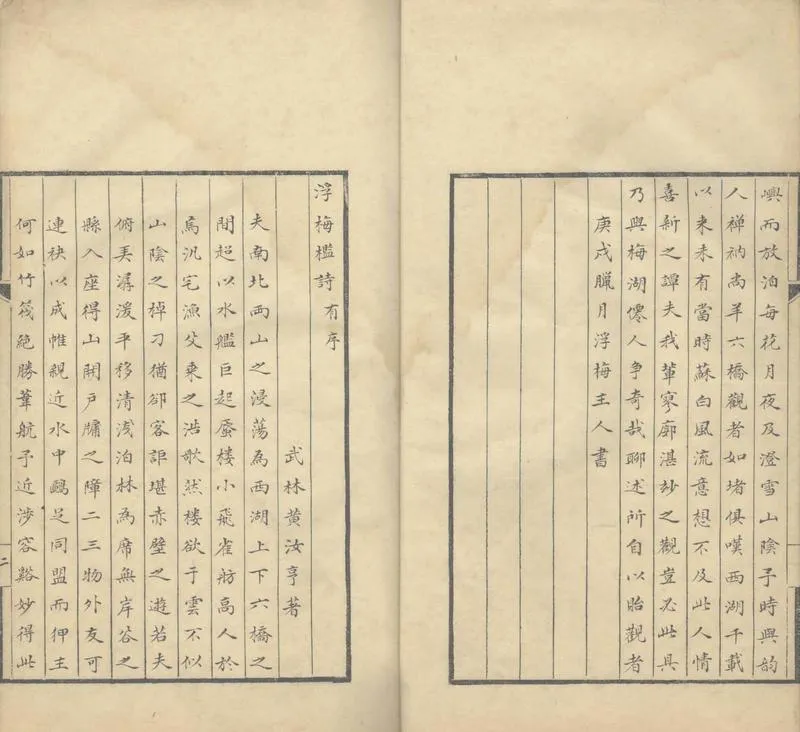 輿而放泊每花月夜及澄雪山陰予時與韵
人禅衲尚羊六橋觀者如堵俱嘆西湖千載
以来未有當時蘇白風流意想不及此人情
喜新之譚夫我輩寥廓湛玅之觀豈必此具
乃與梅湖僊人争奇哉聊述所自以貽觀者
庚戌臘月浮梅主人書
浮梅檻詩有序
武林黄汝亨著
夫南北兩山之浸蕩為西湖上下六橋之
間超以水艦巨起蜃楼小飛雀舫高人於
焉汎宅漁父乘之浩歌然楼欲于雲不似
山陰之棹刀猶卻客詎堪赤壁之遊若夫
俯弄潺湲平移清浅泊林為席無岸谷之
縣入座得山闢戶牖之障二三物外友可
連袂以成帷親近水中鷗足同盟而狎主
何如竹筏絕勝葦航予近涉容谿妙得此
二